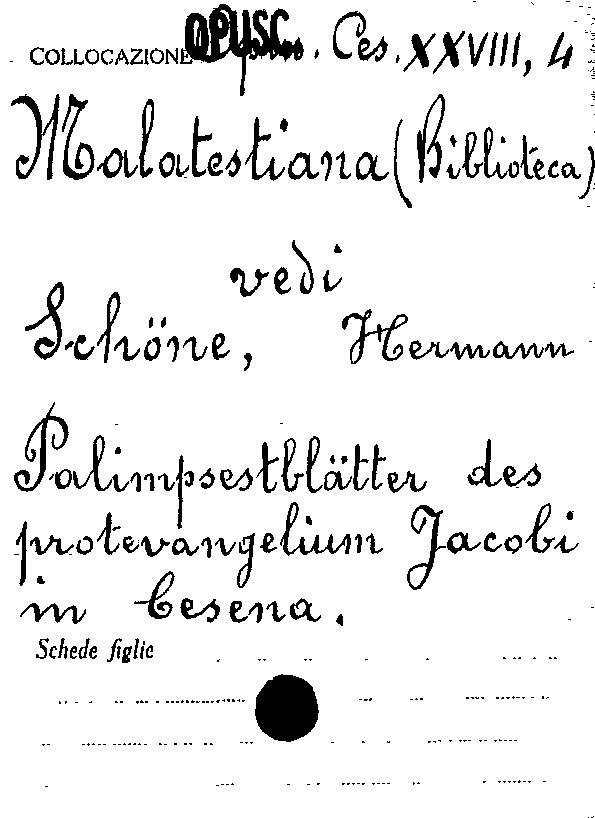 COLLOCAZIONE OPUSC. Ces. XXVIII, 4
Malatestiana (Biblioteca)
vedi
Schöne, Hermann
Palimpsestblätter des
protevangelium Jacobi
in Cesena.
Schede figlie